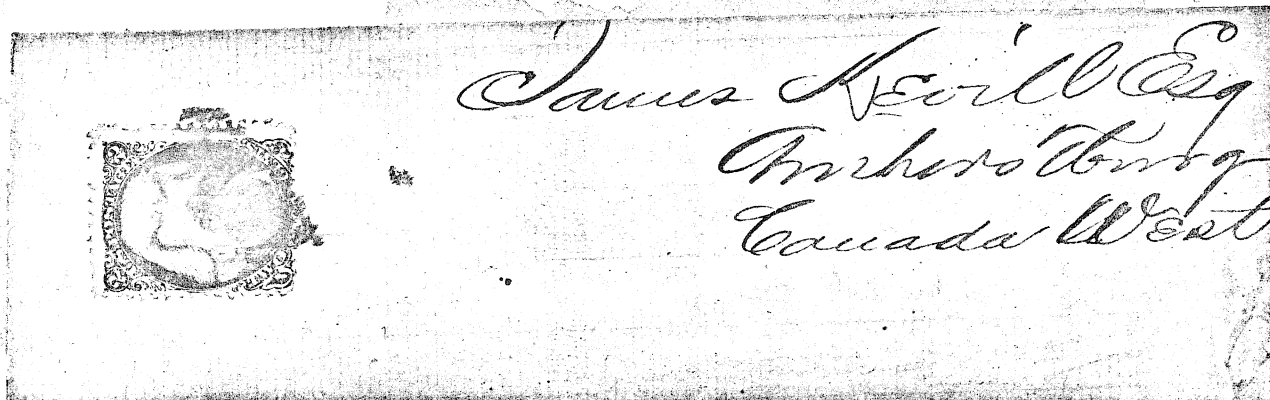 James Kevill Esq
Amherstburg
Canada West